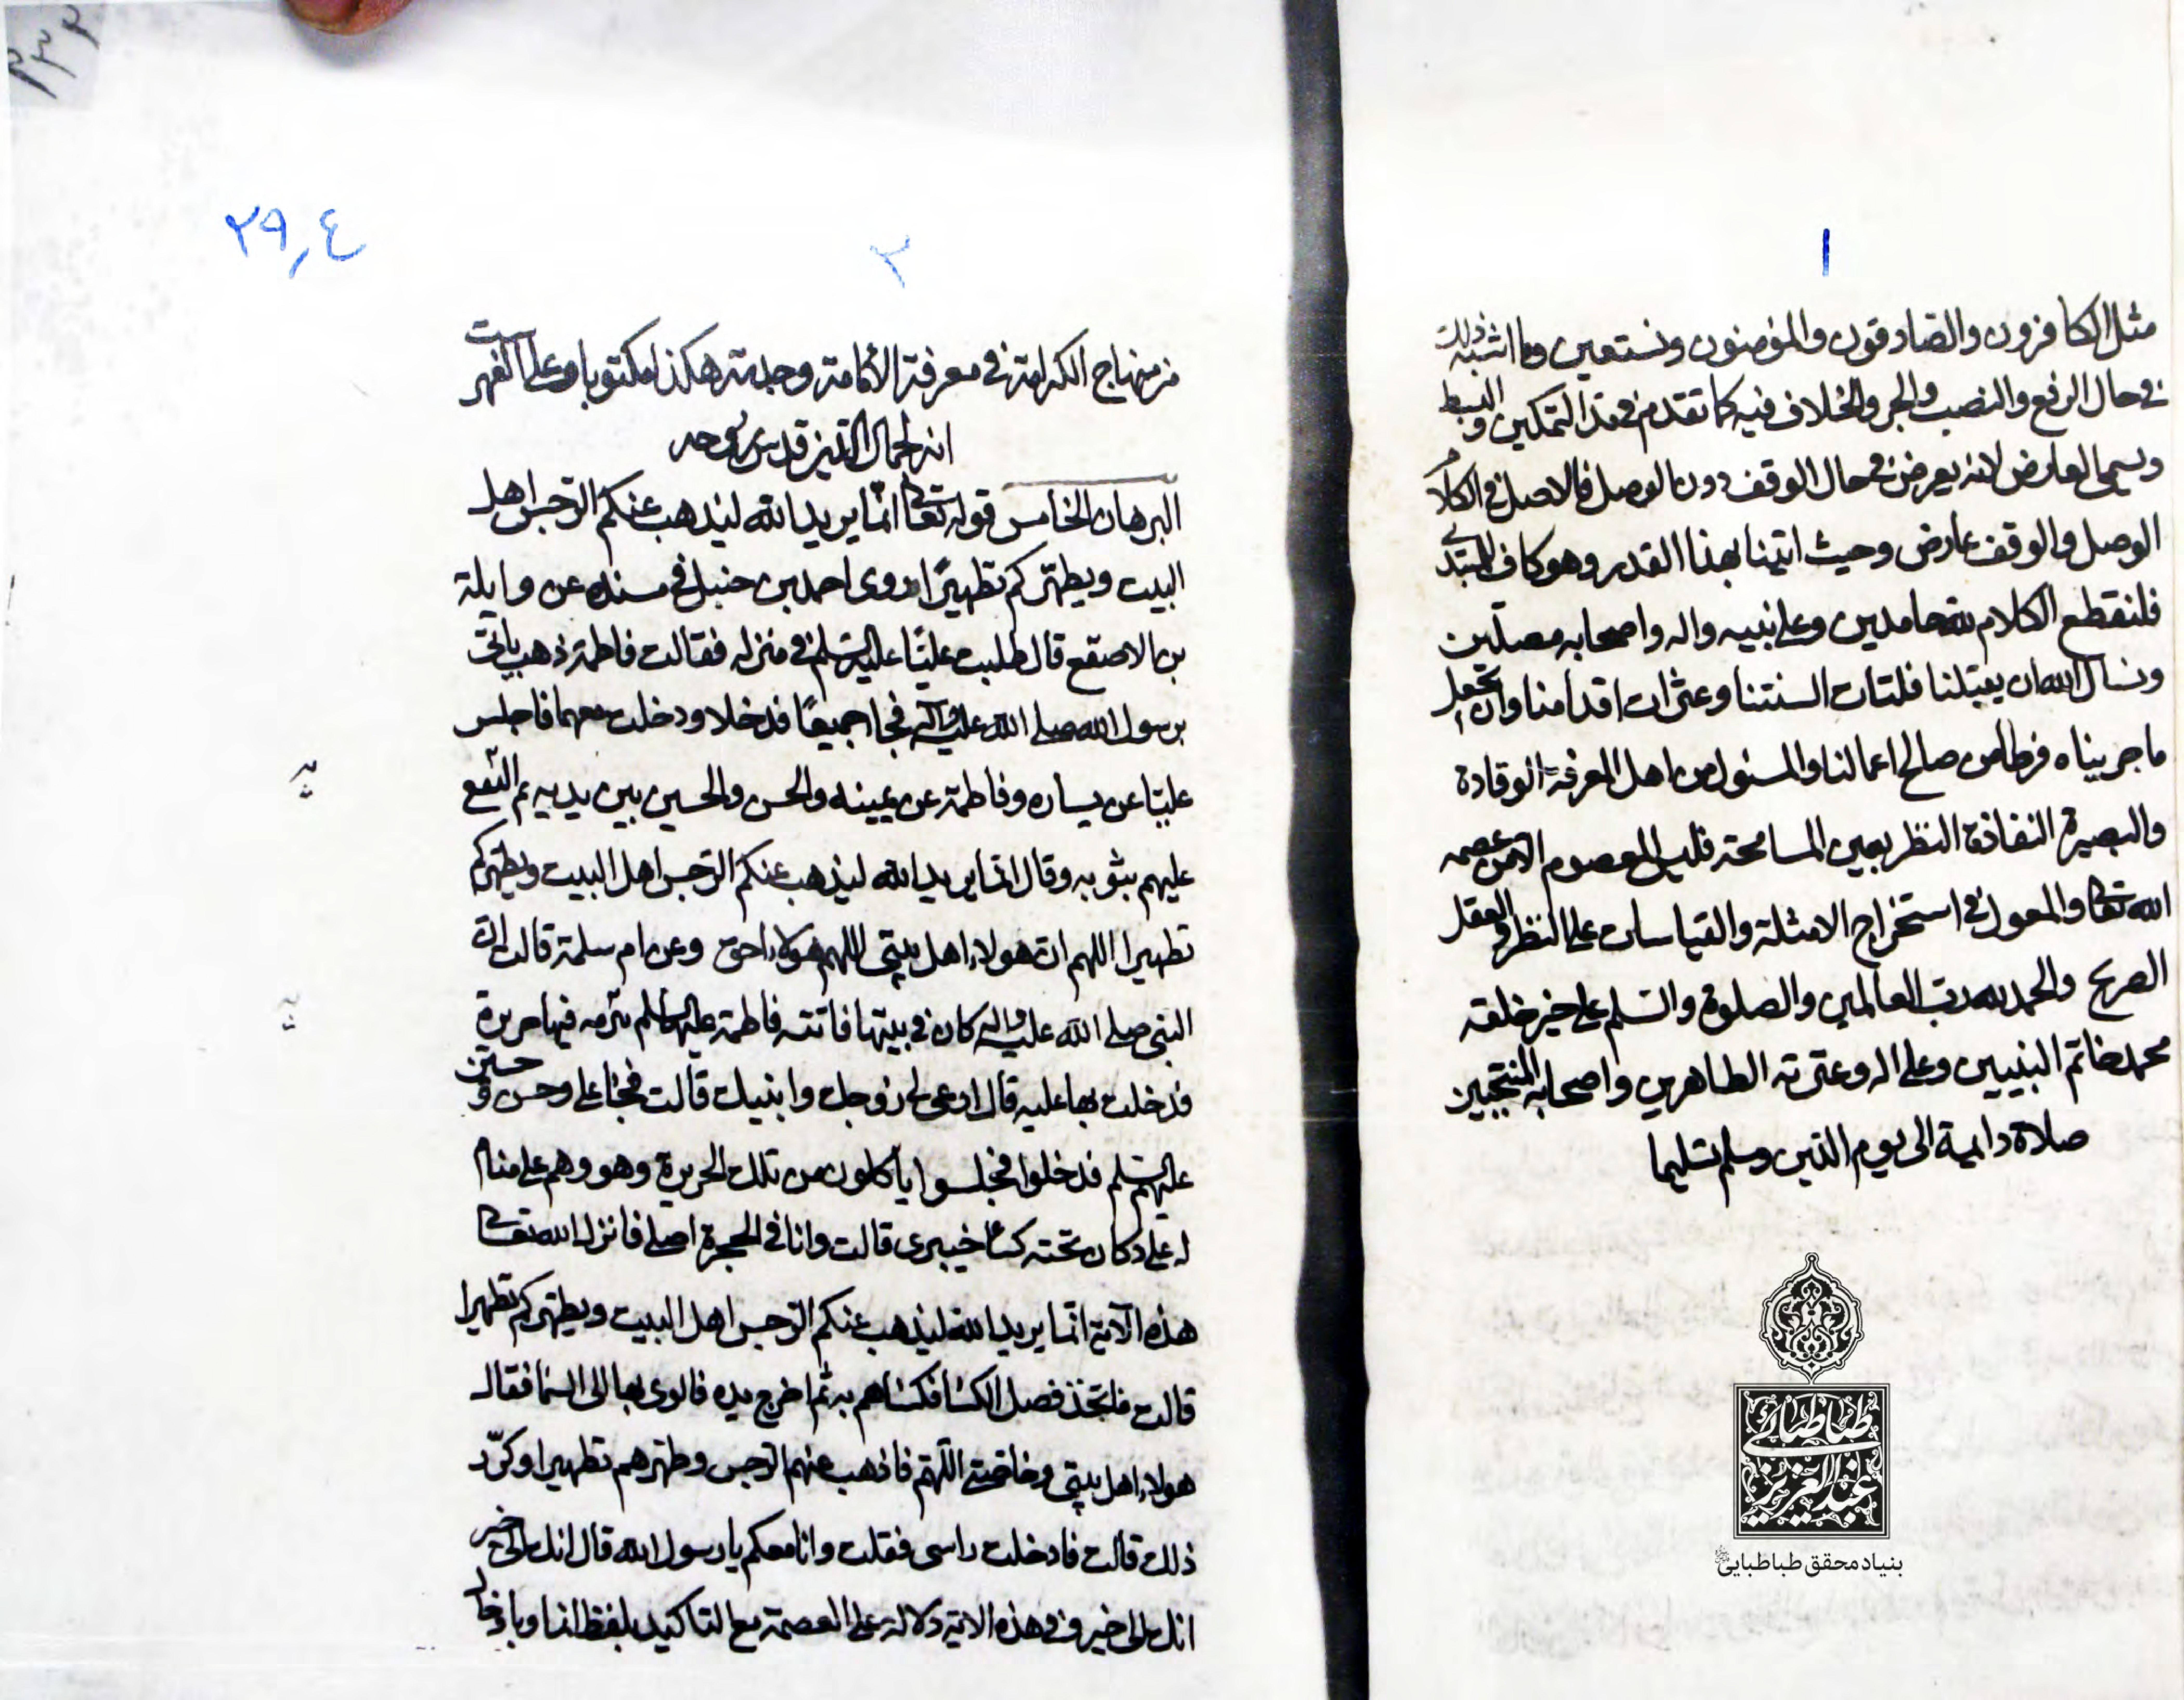 ١
مثل الكافرون والصادقون والمؤمنون ونستعين وما اشبه ذلك
في حال الرفع والنصب والجر والخلاف فيه كما تقدم من قدر التمكين والبسط
ويسمى العارض لانه يعرض في حال الوقف دون الوصل فالاصل في الكلام
الوصل والوقف عارض وحيث اتينا بهذا القدر وهو كاف للمبتدي
فلنقطع الكلام لله حامدين وعلى نبيه واله واصحابه مصلين
ونسال الله ان يقيلنا فلتات السنتنا وعثرات اقدامنا وان يجعل
ما جريناه فرطا من صالح اعمالنا والمسئول من اهل المعرفة الوقادة
والبصيرة النفاذة النظر بعين المسامحة فليس المعصوم الا من عصمه
الله تعالى والمعول في استخراج الامثلة والقياسات على النظر والعقل
الصريح والحمد لله رب العالمين والصلوة والسلم على خير خلقه
محمد خاتم النبيين وعلى اله وعترته الطاهرين واصحابه المنتجبين
صلاة دايمة الى يوم الدين وسلم تسليما
طباطبائی
عبدالعزیز
بنیاد محقق طباطبایی
٢٩٫٤
٢
من منهاج الكرامة في معرفة الامامة وجدته هكذا مكتوبا وعلى الفهرست
انه لجمال الدين قدس روحه
البرهان الخامس قوله تعالى انما يريد الله ليذهب عنكم الرجس اهل
البيت ويطهركم تطهيرا روى احمد بن حنبل في مسنده عن وايلة
بن الاصقع قال طلبت عليا عليه السلم في منزله فقالت فاطمة ذهب ياتي
برسول الله صلى الله عليه وآله فجاا جميعا فدخلا ودخلت معهما فاجلس
عليا عن يساره وفاطمة عن يمينه والحسن والحسين بين يديه ثم التفع
عليهم بثوبه وقال انما يريد الله ليذهب عنكم الرجس اهل البيت ويطهركم
تطهيرا اللهم ان هولاء اهل بيتي اللهم هولاء احق وعن ام سلمة قالت ان
النبي صلى الله عليه واله كان في بيتها فاتته فاطمة عليها السلم ببرمه فيها حريرة
فدخلت بها عليه قال ادعي لي زوجك وابنيك قالت فجاء علي وحسن وحسين
عليهم السلم فدخلوا فجلسوا ياكلون من تلك الحريرة وهو وهم على منام
له على دكان تحته كساء خيبري قالت وانا في الحجرة اصلي فانزل الله تعالى
هذه الآية انما يريد الله ليذهب عنكم الرجس اهل البيت ويطهركم تطهيرا
قالت فاتخذ فضل الكساء فكساهم به ثم اخرج يده فالوى بها الى السما فقال
هولاء اهل بيتي وخاصتي اللهم فاذهب عنهم الرجس وطهرهم تطهيرا وكرر
ذلك قالت فادخلت راسي فقلت وانا معكم يا رسول الله قال انك الى خير
انك الى خير وفي هذه الاية دلالة على العصمة مع التاكيد بلفظ انما وبادخال